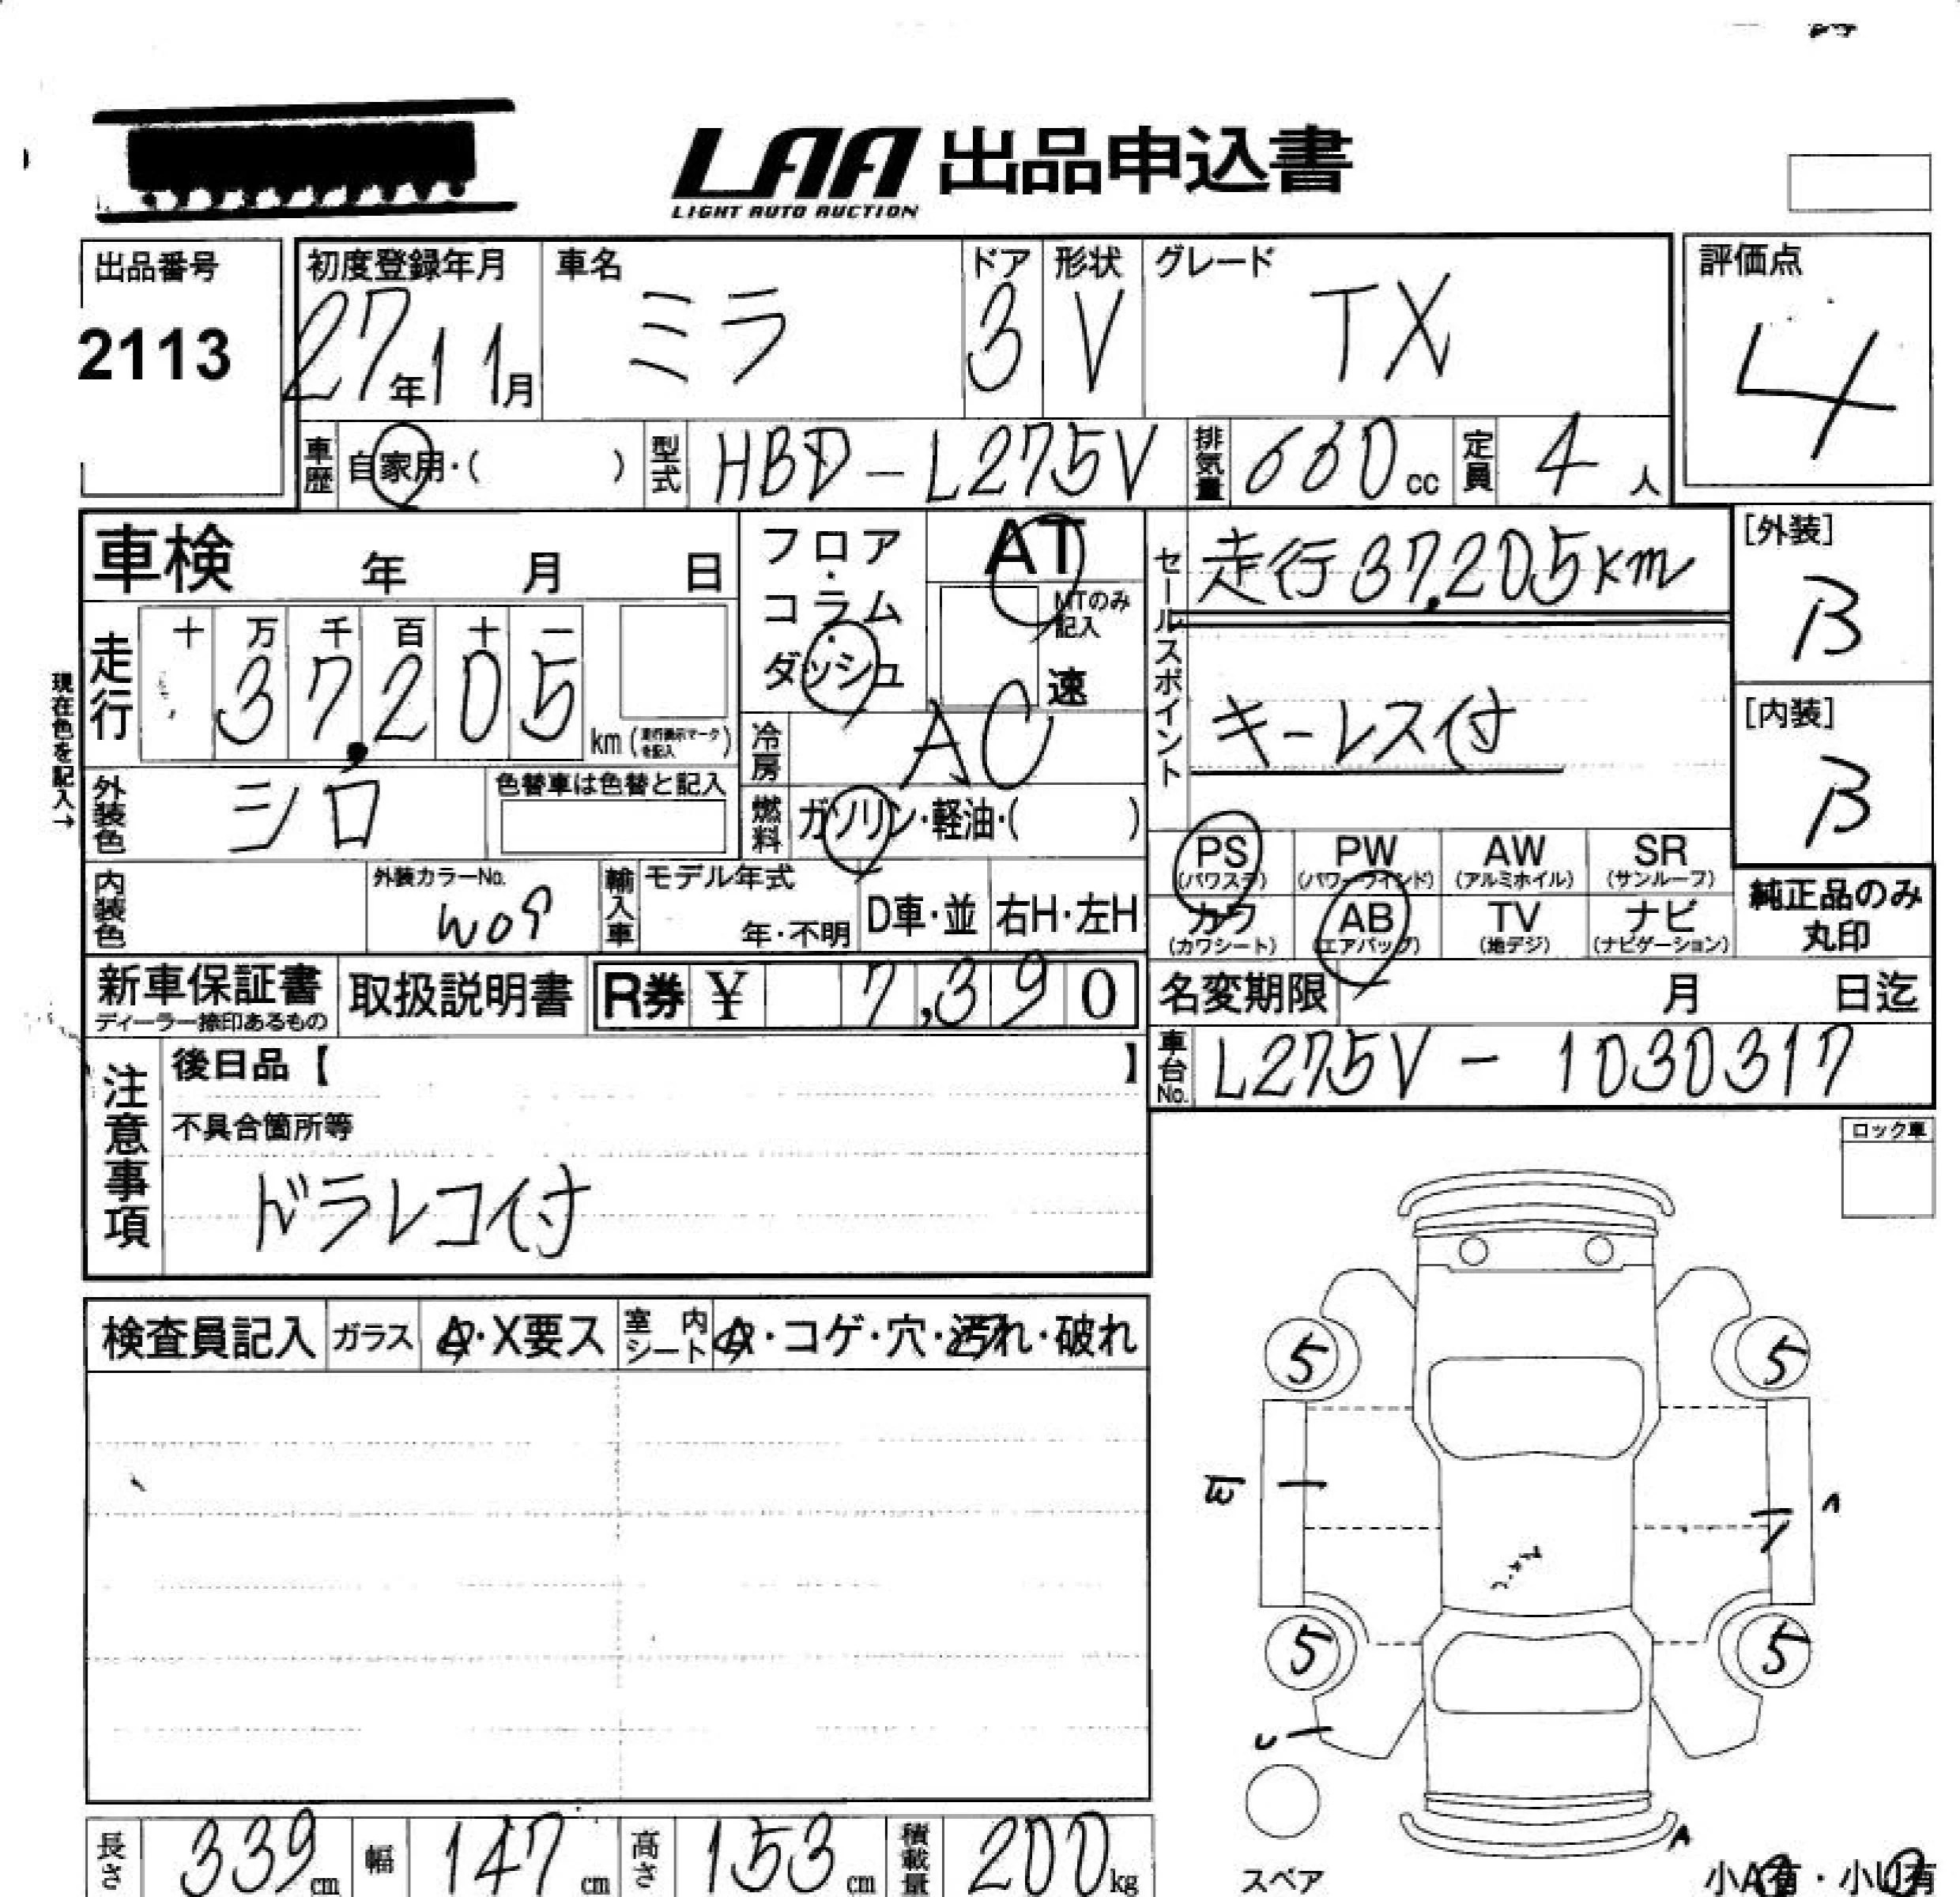 LAA 出品申込書
LIGHT AUTO AUCTION
出品番号
2113
初度登録年月
27年11月
車名
ミラ
ドア
3
形状
V
グレード
TX
評価点
4
車歴 自家用・( )
型式 HBD-L275V
排気量 660cc
定員 4人
車検 年 月 日
フロア・コラム・ダッシュ
AT
MTのみ記入
速
セールスポイント
走行37,205km
キーレス付
[外装]
B
[内装]
B
現在色を記入→
走行
十 万 千 百 十 一
37,205
km(走行表示マークを記入)
冷房 AC
外装色 シロ
色替車は色替と記入
燃料 ガソリン・軽油・( )
内装色
外装カラーNo.
W09
輸入車
モデル年式
年・不明
D車・並
右H・左H
PS
(パワステ)
PW
(パワーウインド)
AW
(アルミホイル)
SR
(サンルーフ)
カワ
(カワシート)
AB
(エアバッグ)
TV
(地デジ)
ナビ
(ナビゲーション)
純正品のみ
丸印
新車保証書
ディーラー捺印あるもの
取扱説明書
R券 ¥ 7,390
名変期限 月 日迄
車台No. L275V-1030317
注意事項
後日品【 】
不具合箇所等
ドラレコ付
ロック車
検査員記入
ガラス
A・X要ス
室内シート
A・コゲ・穴・汚れ・破れ
5
5
5
5
A
スペア
小A有・小U有
長さ 339cm
幅 147cm
高さ 153cm
積載量 200kg